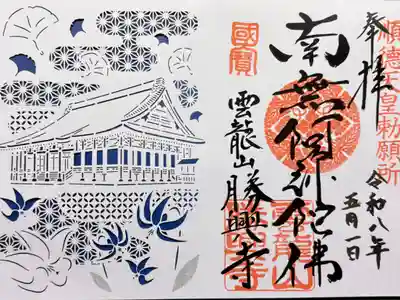 順徳天皇勅願所
奉拝
令和八年
五月一日
南無阿弥陀佛
國寶
雲龍山勝興寺
雲龍山